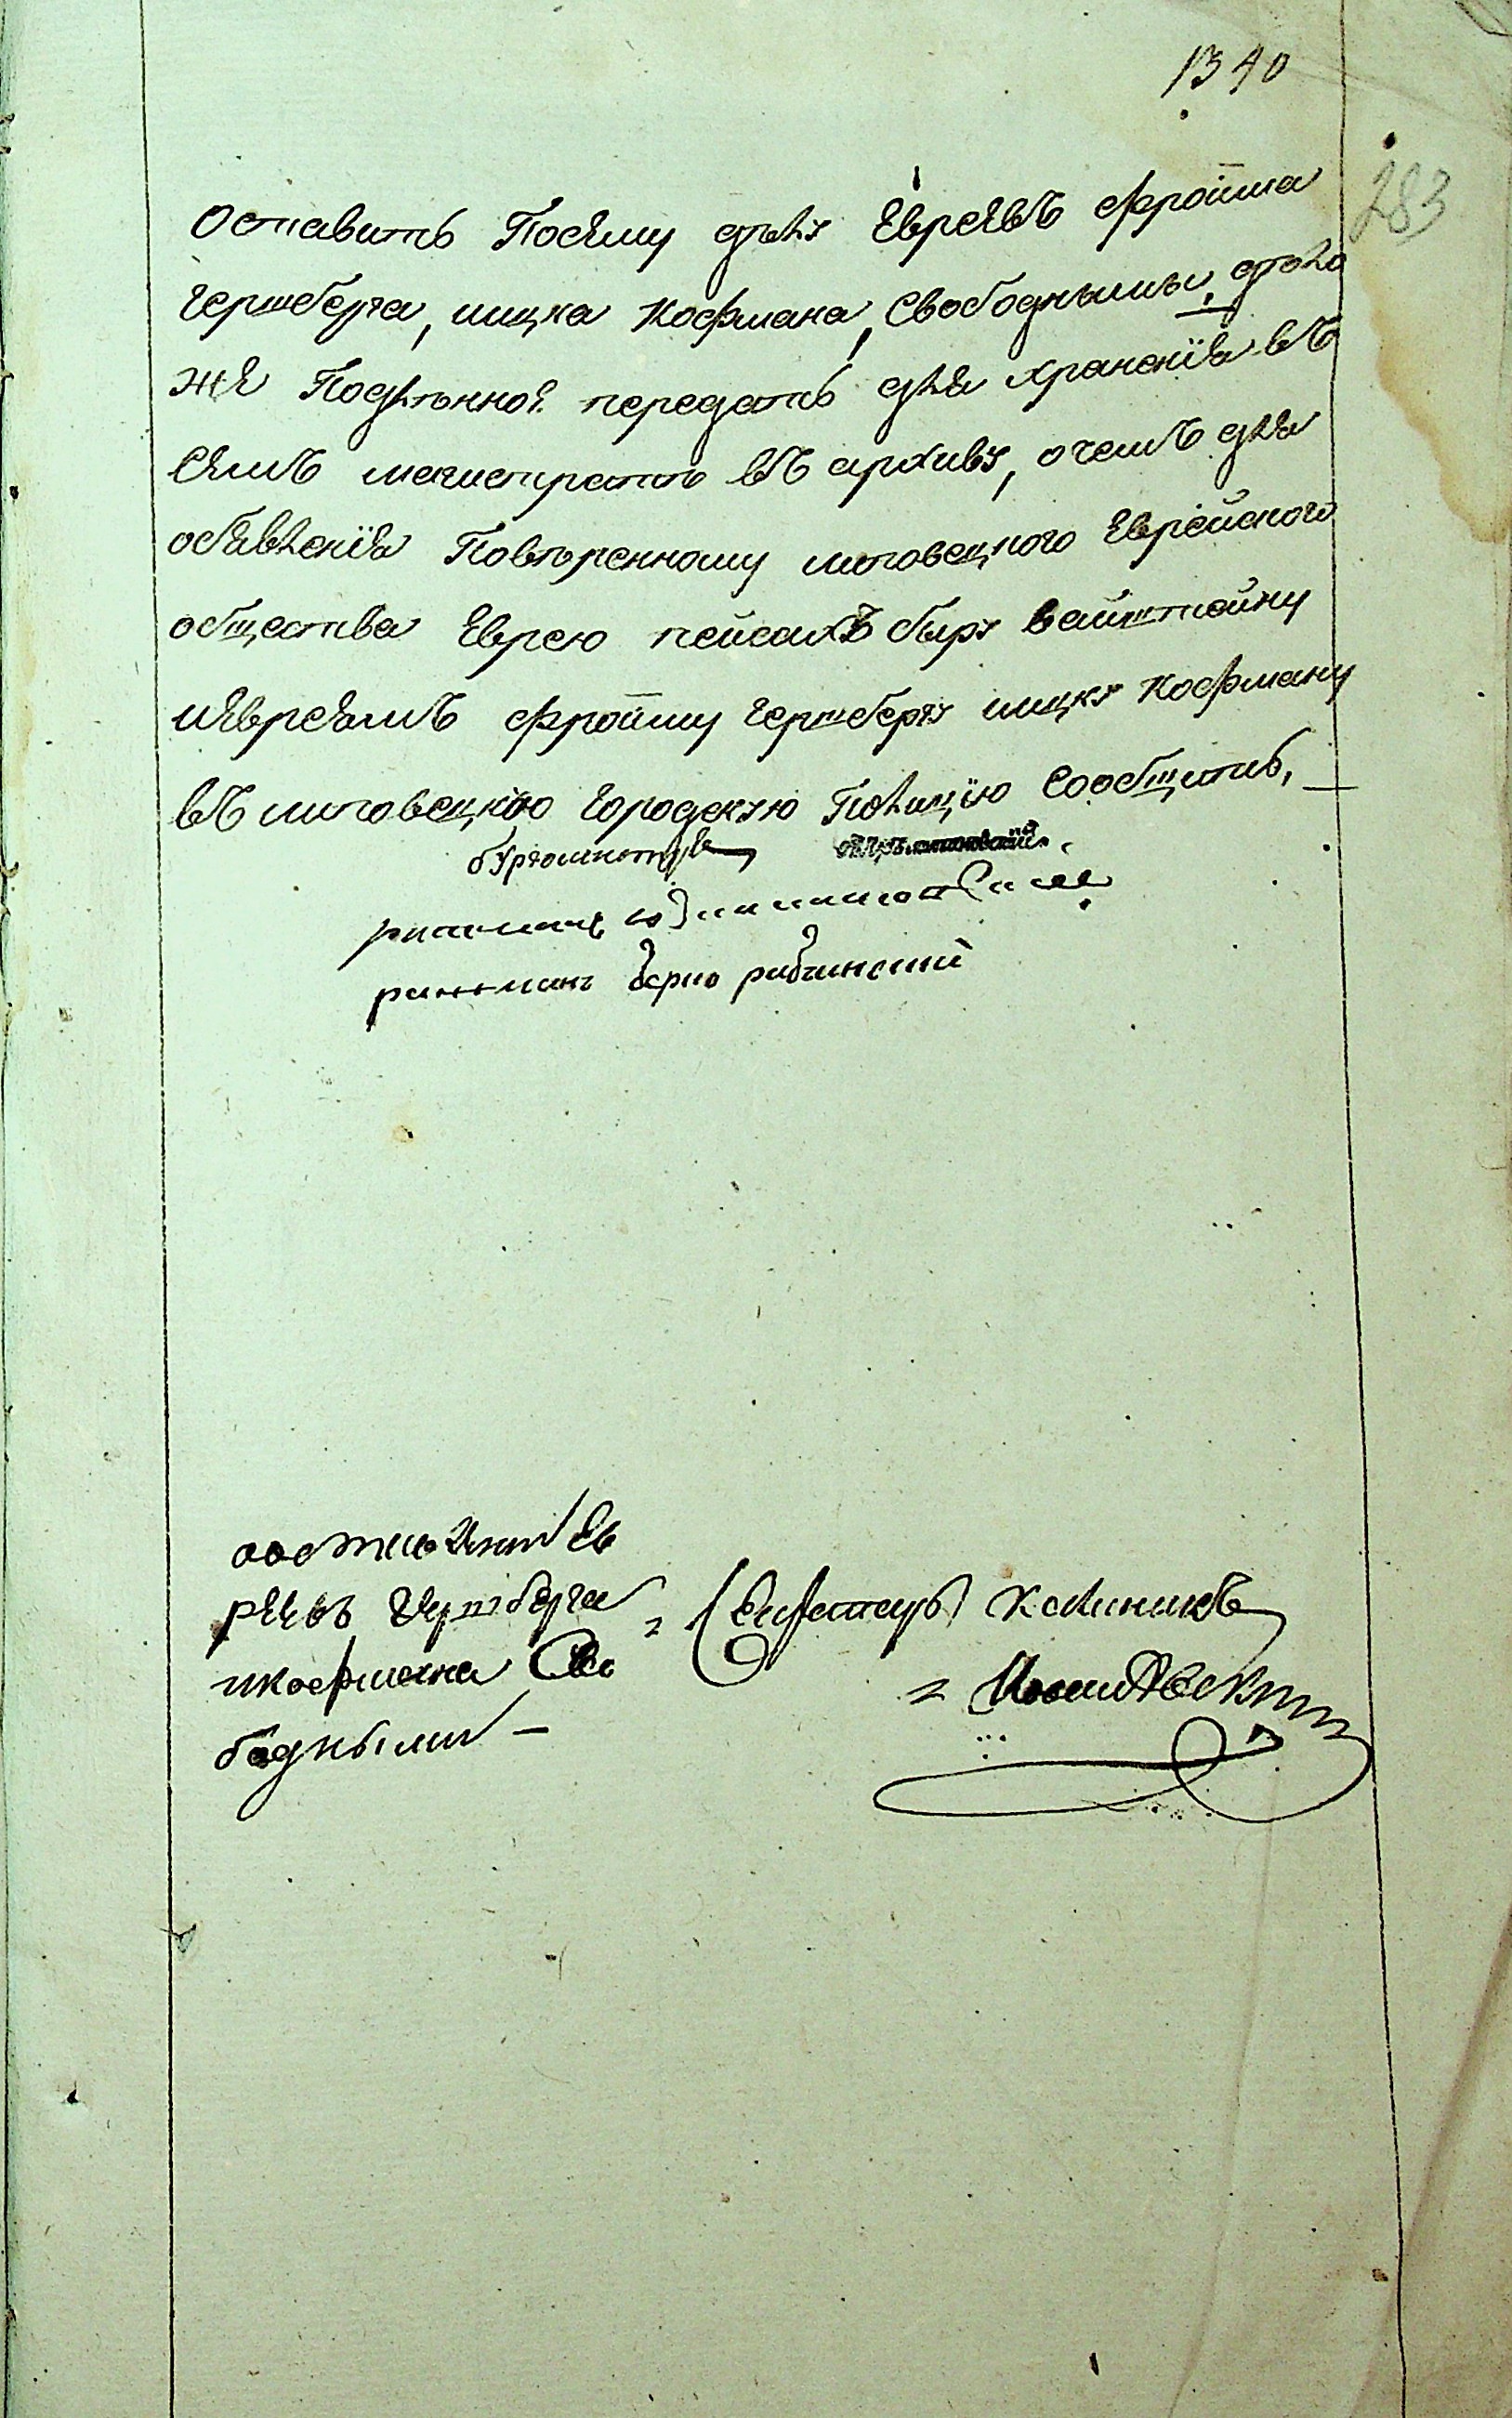 1340
283
Оставить Посему делу Евреевъ Фроима
Гершберга, ицка Кофмана, Свободными, дело
же Подленное передать для храненія въ
семъ магистрате въ архиву, о чемъ для
объявленія Поверенному литовецкого Еврейского
общества Еврею пейсахъ беру вайнштейну
и Евреямъ Фроиму Гершбергу ицку Кофману
въ литовецкую Городскую Полицію Сообщить,
бургомистръ
ратманъ
ратманъ
оставить ев
реевъ Гершберга
и кофмана Сво
бодными
Секретарь Калиниковъ